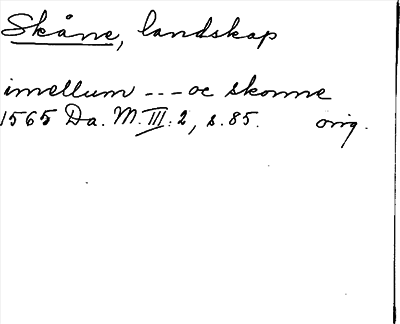 Skåne, landskap
imellum --- oc skonne
1565 Da. M. III: 2, s. 85. orig.